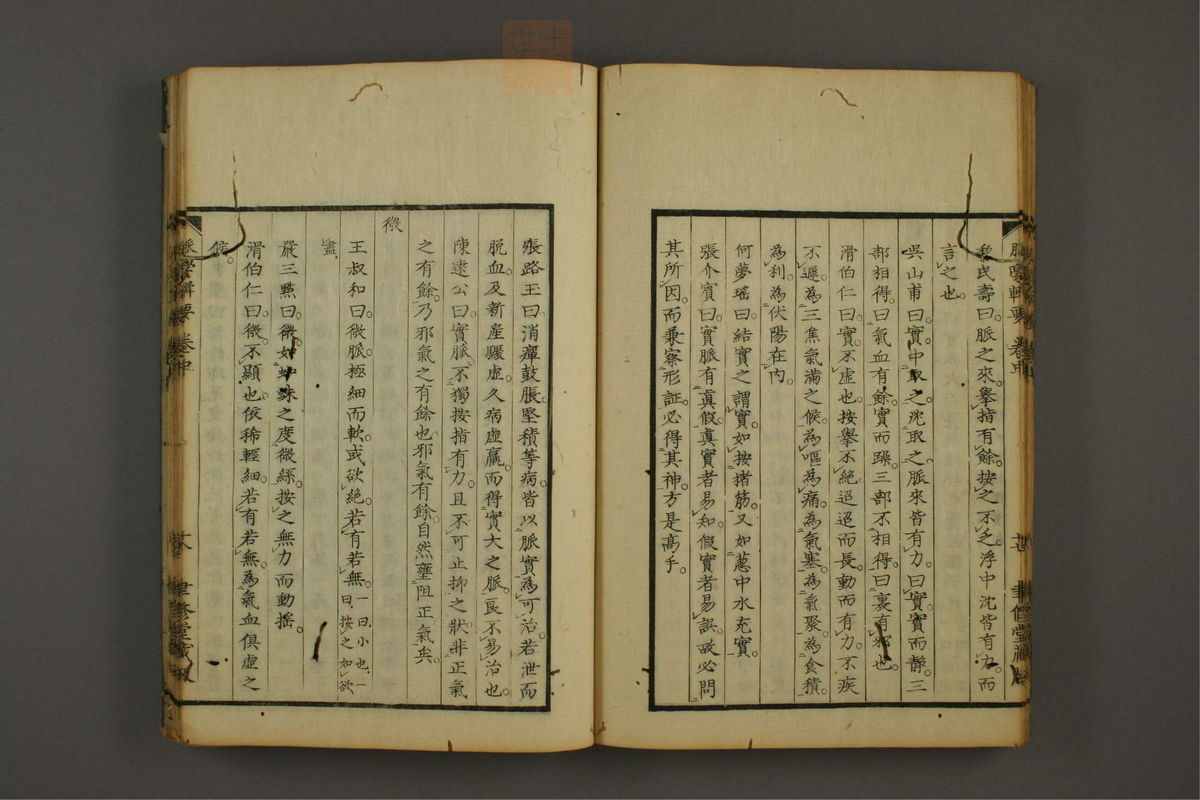 黎民壽曰。脈之來。擧指有餘。按之不乏。浮中沈皆有力。而
言之也。
吳山甫曰。實。中取之沈取之脈來皆有力。曰實。實而靜。三
部相得。曰氣血有餘。實而躁。三部不相得。曰裏有邪也。
滑伯仁曰。實。不虛也。按擧不絕。迢迢而長。動而有力。不疾
不遲。為三焦氣滿之候。為嘔為痛。為氣塞。為氣聚。為食積。
為利。為伏陽在內。
何夢瑤曰。結實之謂實。如按猪筋。又如葱中水充實。
張介賓曰。實脈有眞假。眞實者易知。假實者易誤。故必問
其所因。而兼察形証。必得其神。方是高手。
張路玉曰。消癉鼓脹。堅積等病。皆以脈實為可治。若泄而
脫血。及新產驟虛。久病虛羸。而得實大之脈。良不易治也。
陳遠公曰。實脈。不獨按指有力。且不可止抑之狀。非正氣
之有餘。乃邪氣之有餘也。邪氣有餘。自然壅阻正氣矣。
微
王叔和曰。微脈極細而軟。或欲絕。若有若無。一曰。小也。一曰。按之如欲
盡。
嚴三點曰。微。如蛛之度微絲。按之無力而動搖。
滑伯仁曰。微。不顯也。依稀輕細。若有若無。為氣血俱虛之
候。